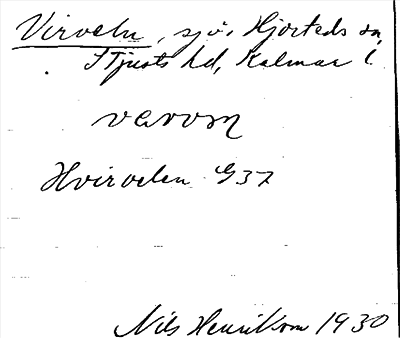 Virveln, sjö, Hjorteds sn,
S Tjusts hd, Kalmar l
Hvirvelen G37
Nils Henrikson 1930